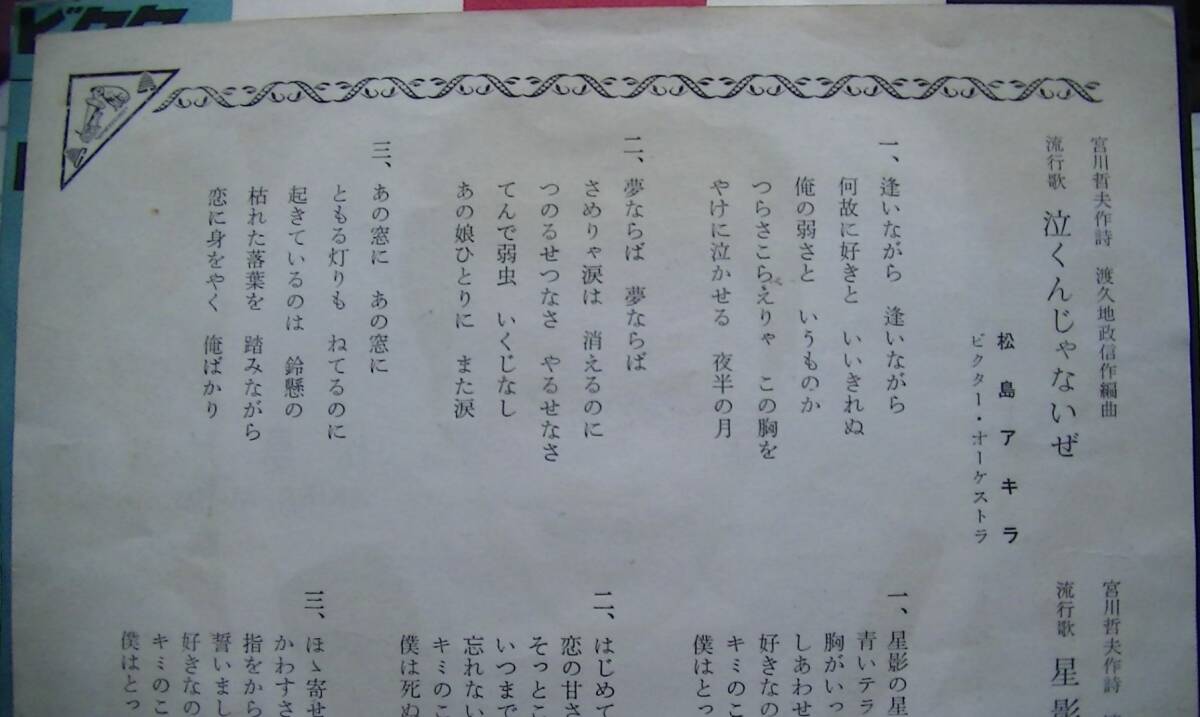 ビクタ
宮川哲夫作詩　渡久地政信作編曲
流行歌　泣くんじゃないぜ
松島アキラ
ビクター・オーケストラ
一、逢いながら　逢いながら
何故に好きと　いいきれぬ
俺の弱さと　いうものか
つらさこらえりゃ　この胸を
やけに泣かせる　夜半の月
二、夢ならば　夢ならば
さめりゃ涙は　消えるのに
つのるせつなさ　やるせなさ
てんで弱虫　いくじなし
あの娘ひとりに　また涙
三、あの窓に　あの窓に
ともる灯りも　ねてるのに
起きているのは　鈴懸の
枯れた落葉を　踏みながら
恋に身をやく　俺ばかり
宮川哲夫作詩
流行歌　星影
一、星影の星
青いテラ
胸がいっ
しあわせ
好きなの
キミのこ
僕はとっ
二、はじめて
恋の甘さ
そっとこ
いつまで
忘れない
キミのこ
僕は死ぬ
三、ほゝ寄せ
かわすさ
指をから
誓いまし
好きなの
キミのこ
僕はとっ